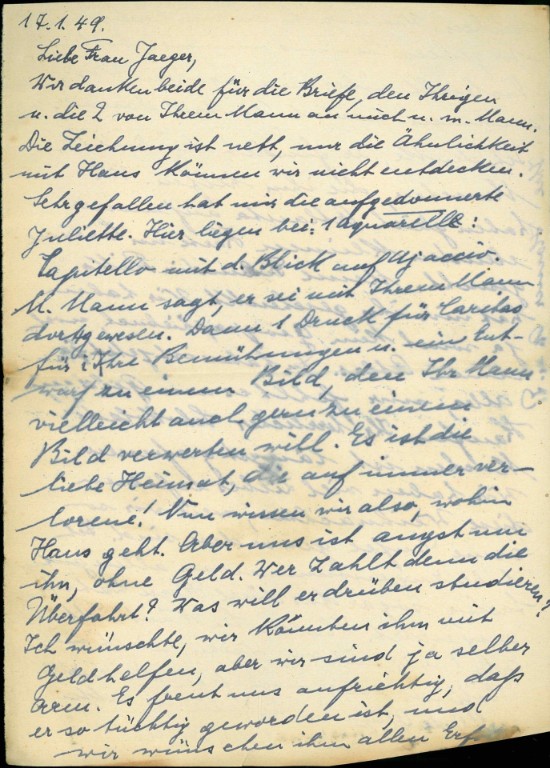 17.1.49.
Liebe Frau Jaeger,
Wir danken beide für die Briefe, den Ihrigen
u. die 2 von Ihrem Mann an mich u. m. Mann.
Die Zeichnung ist nett, nur die Ähnlichkeit
mit Hans können wir nicht entdecken.
Sehr gefallen hat mir die aufgedonnerte
Juliette. Hier liegen bei: 1 aquarelle:
Capitello mit d. Blick auf Ajaccio.
M. Mann sagt, er sei mit Ihrem Mann
dort gewesen. Dann 1 Druck für Caritas
für Ihre Bemühungen u. ein Ent-
wurf zu einem Bild, den Ihr Mann
vielleicht auch gern zu einem
Bild verwerten will. Es ist die
liebe Heimat, die auf immer ver-
lorene! Nun wissen wir also, wohin
Hans geht. Aber uns ist angst um
ihn, ohne Geld. Wer zahlt denn die
Überfahrt? Was will er drüben studieren?
Ich wünschte, wir könnten ihm mit
Geld helfen, aber wir sind ja selber
arm. Es freut uns aufrichtig, daß
er so tüchtig geworden ist, und
wir wünschen ihm allen Erf